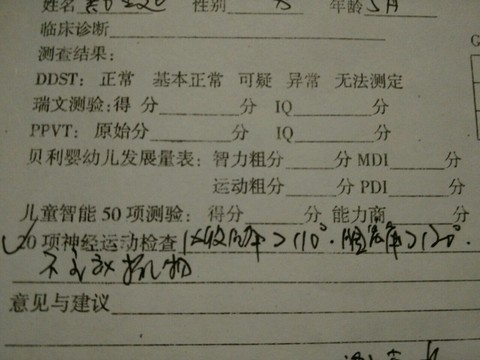 姓名 性别 年龄 5月
临床诊断
测查结果:
DDST: 正常 基本正常 可疑 异常 无法测定
瑞文测验:得 分 分 IQ
PPVT: 原始分 分 IQ
贝利婴幼儿发展量表:智力粗分 分 MDI 分
运动粗分 分 PDI 分
儿童智能 50 项测验: 得分 分 能力商 分
✓20 项神经运动检查 内收肌角>110°. 腘窝角>120°.
不主动抓物
意见与建议